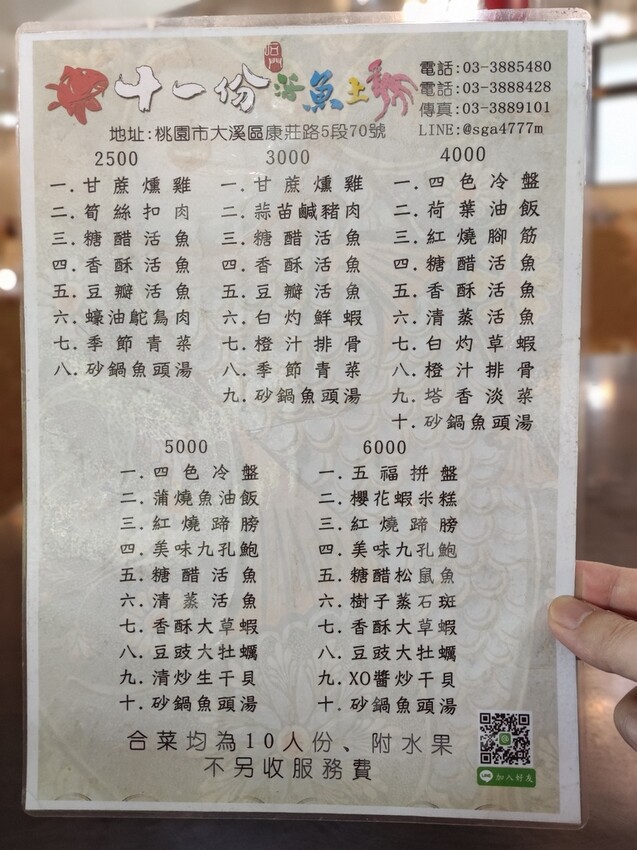 石門
十一份活魚土雞
電話:03-3885480
電話:03-3888428
傳真:03-3889101
地址:桃園市大溪區康莊路5段70號
LINE:@sga4777m
2500
一.甘蔗燻雞
二.筍絲扣肉
三.糖醋活魚
四.香酥活魚
五.豆瓣活魚
六.蠔油鴕鳥肉
七.季節青菜
八.砂鍋魚頭湯
3000
一.甘蔗燻雞
二.蒜苗鹹豬肉
三.糖醋活魚
四.香酥活魚
五.豆瓣活魚
六.白灼鮮蝦
七.橙汁排骨
八.季節青菜
九.砂鍋魚頭湯
4000
一.四色冷盤
二.荷葉油飯
三.紅燒腳筋
四.糖醋活魚
五.香酥活魚
六.清蒸活魚
七.白灼草蝦
八.橙汁排骨
九.塔香淡菜
十.砂鍋魚頭湯
5000
一.四色冷盤
二.蒲燒魚油飯
三.紅燒蹄膀
四.美味九孔鮑
五.糖醋活魚
六.清蒸活魚
七.香酥大草蝦
八.豆豉大牡蠣
九.清炒生干貝
十.砂鍋魚頭湯
6000
一.五福拼盤
二.櫻花蝦米糕
三.紅燒蹄膀
四.美味九孔鮑
五.糖醋松鼠魚
六.樹子蒸石斑
七.香酥大草蝦
八.豆豉大牡蠣
九.XO醬炒干貝
十.砂鍋魚頭湯
合菜均為10人份、附水果
不另收服務費
LINE 加入好友